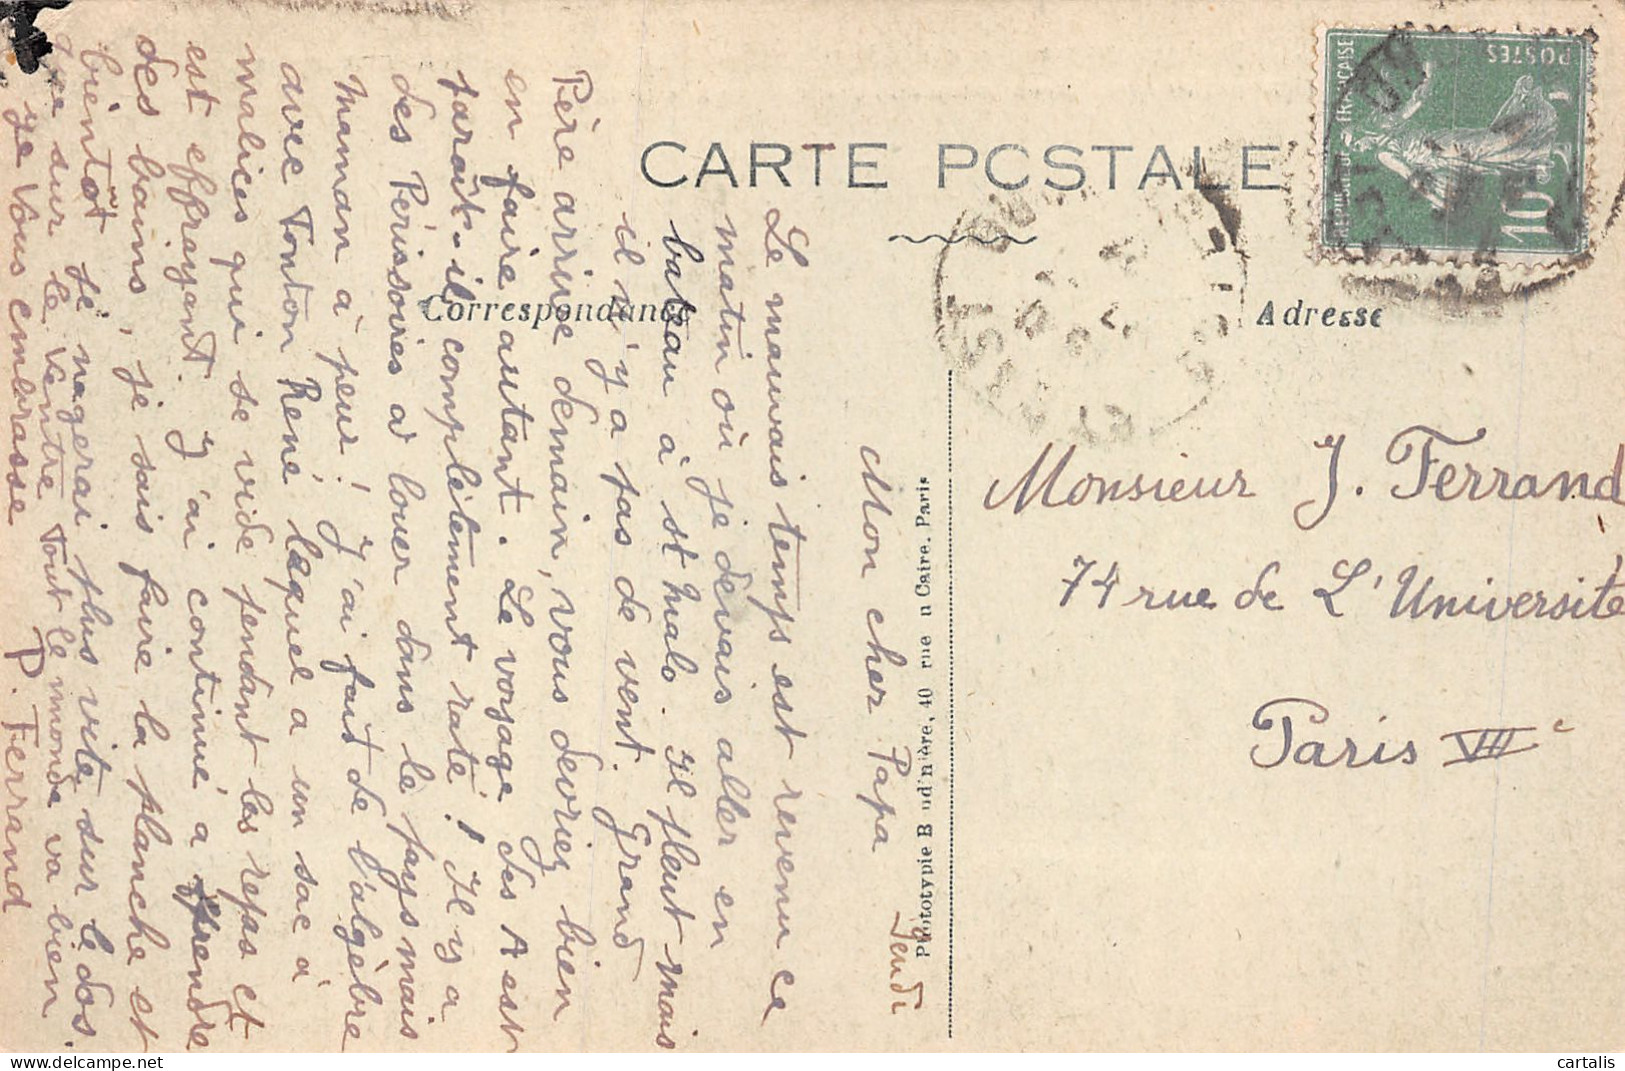 CARTE POSTALE
Correspondance
Adresse
REPUBLIQUE FRANÇAISE
POSTES
10c
Monsieur J. Ferrand
74 rue de L'Université
Paris VIIe
Phototypie B ud'nière, 40 rue u Caire, Paris
Jeudi
Mon cher Papa
Le mauvais temps est revenu ce
matin où je devais aller en
bateau à st Malo. Il pleut mais
il n'y a pas de vent. Grand
Père arrive demain, vous devriez bien
en faire autant. Le voyage des A est
parait-il complètement raté! Il y a
des Périssoires à louer dans le pays mais
Maman à peur! J'ai fait de l'algèbre
avec Tonton René lequel a un sac à
malices qui se vide pendant les repas et
est effrayant. J'ai continué à prendre
des bains, je sais faire la planche et
bientôt je nagerai plus vite sur le dos
que sur le ventre Tout le monde va bien
Je vous embrasse
P. Ferrand
cartalis